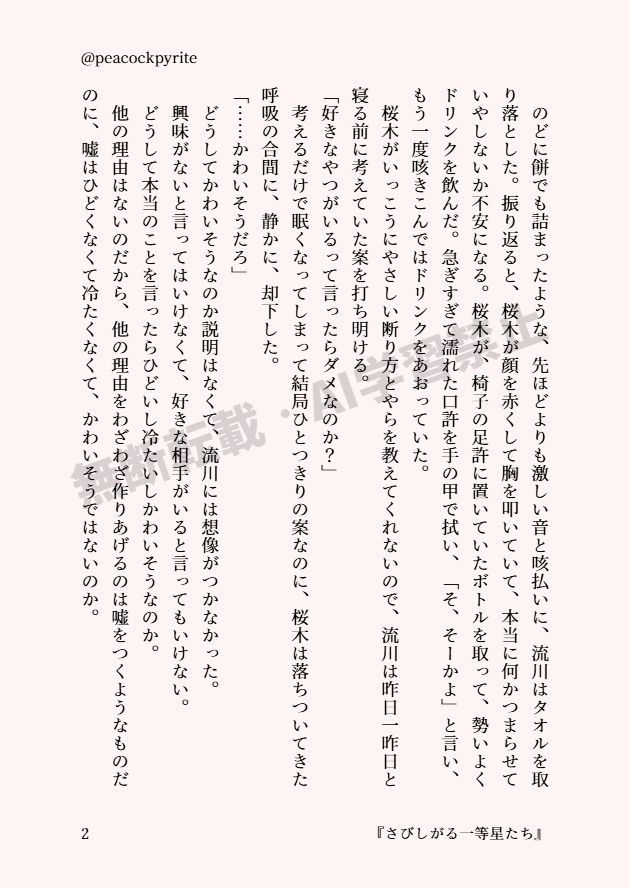 @peacockpyrite
のどに餅でも詰まったような、先ほどよりも激しい音と咳払いに、流川はタオルを取
り落とした。振り返ると、桜木が顔を赤くして胸を叩いていて、本当に何かつまらせて
いやしないか不安になる。桜木が、椅子の足許に置いていたボトルを取って、勢いよく
ドリンクを飲んだ。急ぎすぎて濡れた口許を手の甲で拭い、「そ、そーかよ」と言い、
もう一度咳きこんではドリンクをあおっていた。
桜木がいっこうにやさしい断り方とやらを教えてくれないので、流川は昨日一昨日と
寝る前に考えていた案を打ち明ける。
「好きなやつがいるって言ったらダメなのか？」
考えるだけで眠くなってしまって結局ひとつきりの案なのに、桜木は落ちついてきた
呼吸の合間に、静かに、却下した。
「……かわいそうだろ」
どうしてかわいそうなのか説明はなくて、流川には想像がつかなかった。
興味がないと言ってはいけなくて、好きな相手がいると言ってもいけない。
どうして本当のことを言ったらひどいし冷たいしかわいそうなのか。
他の理由はないのだから、他の理由をわざわざ作りあげるのは嘘をつくようなものだ
のに、嘘はひどくなくて冷たくなくて、かわいそうではないのか。
無断転載・AI学習禁止
2
『さびしがる一等星たち』